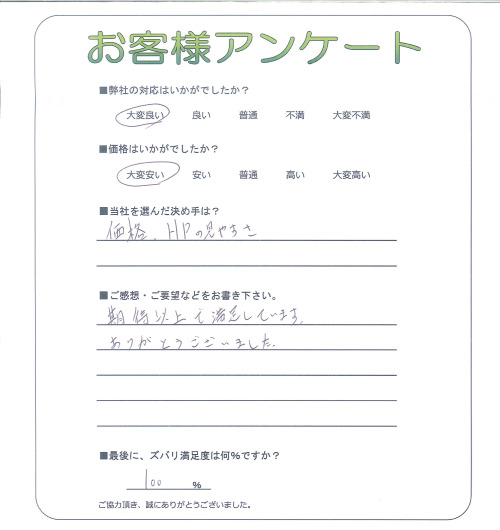 お客様アンケート
■弊社の対応はいかがでしたか？
大変良い 良い 普通 不満 大変不満
■価格はいかがでしたか？
大変安い 安い 普通 高い 大変高い
■当社を選んだ決め手は？
価格、HPの見やすさ
■ご感想・ご要望などをお書き下さい。
期待以上で満足しています。
ありがとうございました。
■最後に、ズバリ満足度は何%ですか？
100 %
ご協力頂き、誠にありがとうございました。